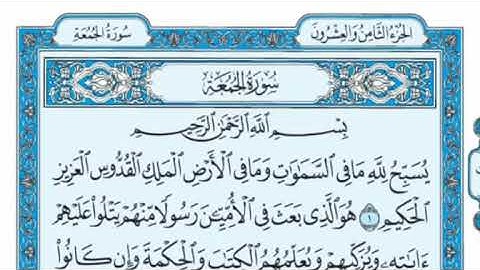 الجزء الثامن والعشرون
سورة الجمعة
سُورَةُ الجُمُعَةِ
بِسْمِ اللَّهِ الرَّحْمَٰنِ الرَّحِيمِ
يُسَبِّحُ لِلَّهِ مَا فِي السَّمَٰوَٰتِ وَمَا فِي الْأَرْضِ الْمَلِكِ الْقُدُّوسِ الْعَزِيزِ
الْحَكِيمِ ١ هُوَ الَّذِي بَعَثَ فِي الْأُمِّيِّـۧنَ رَسُولًا مِّنْهُمْ يَتْلُوا۟ عَلَيْهِمْ
ءَايَٰتِهِۦ وَيُزَكِّيهِمْ وَيُعَلِّمُهُمُ الْكِتَٰبَ وَالْحِكْمَةَ وَإِن كَانُوا۟